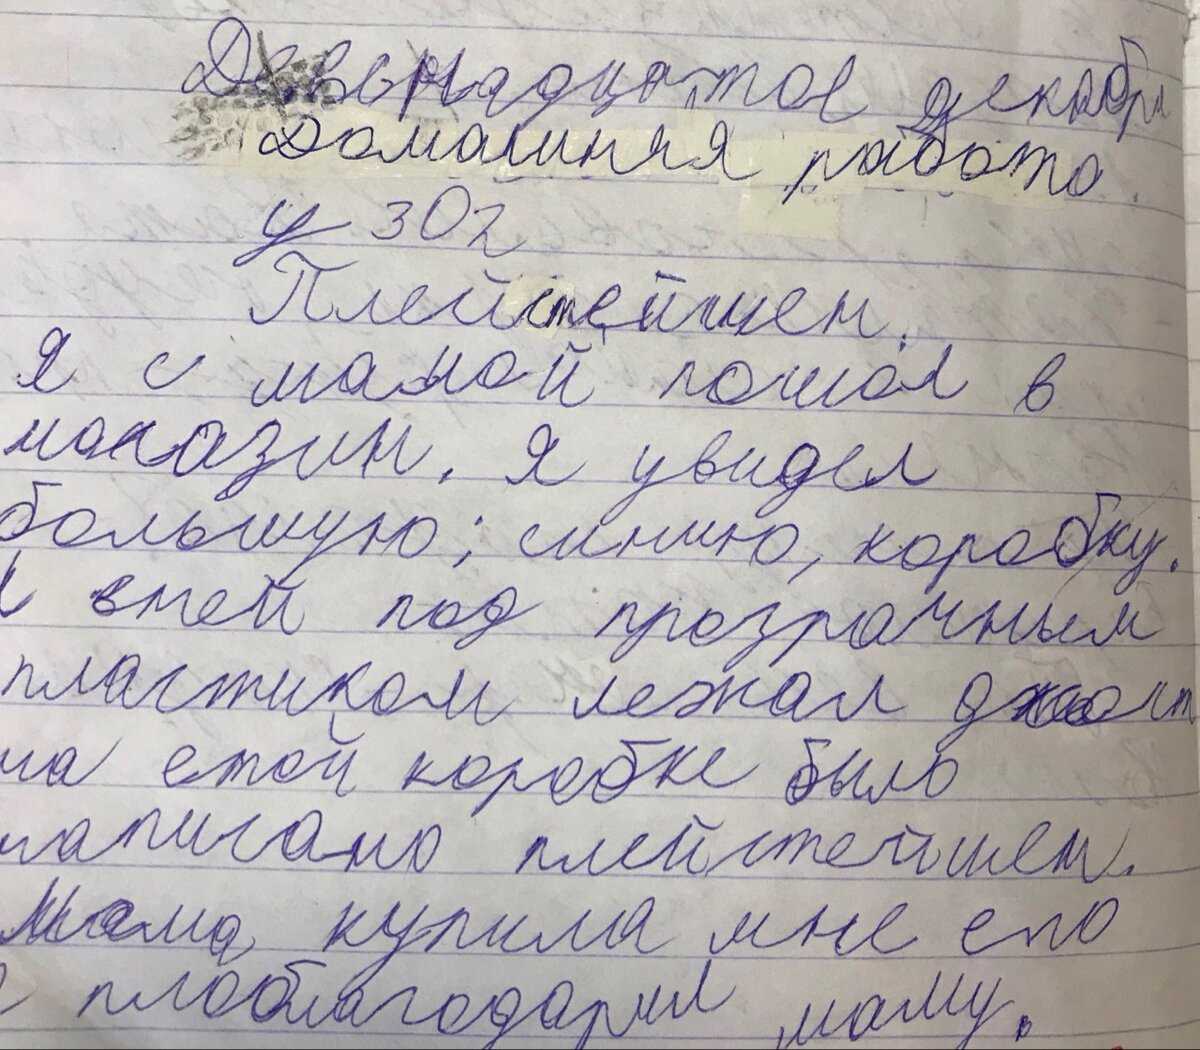 Двенадцатое декабря
Домашняя работа.
у 302
Плейстейшен.
Я с мамой пошол в
магазин. Я увидел
большую; синию, коробку.
в ней под прозрачным
пластиком лежал джост
на етой коробке было
написано плейстейшен.
Мама купила мне его
я поблагодарил маму.